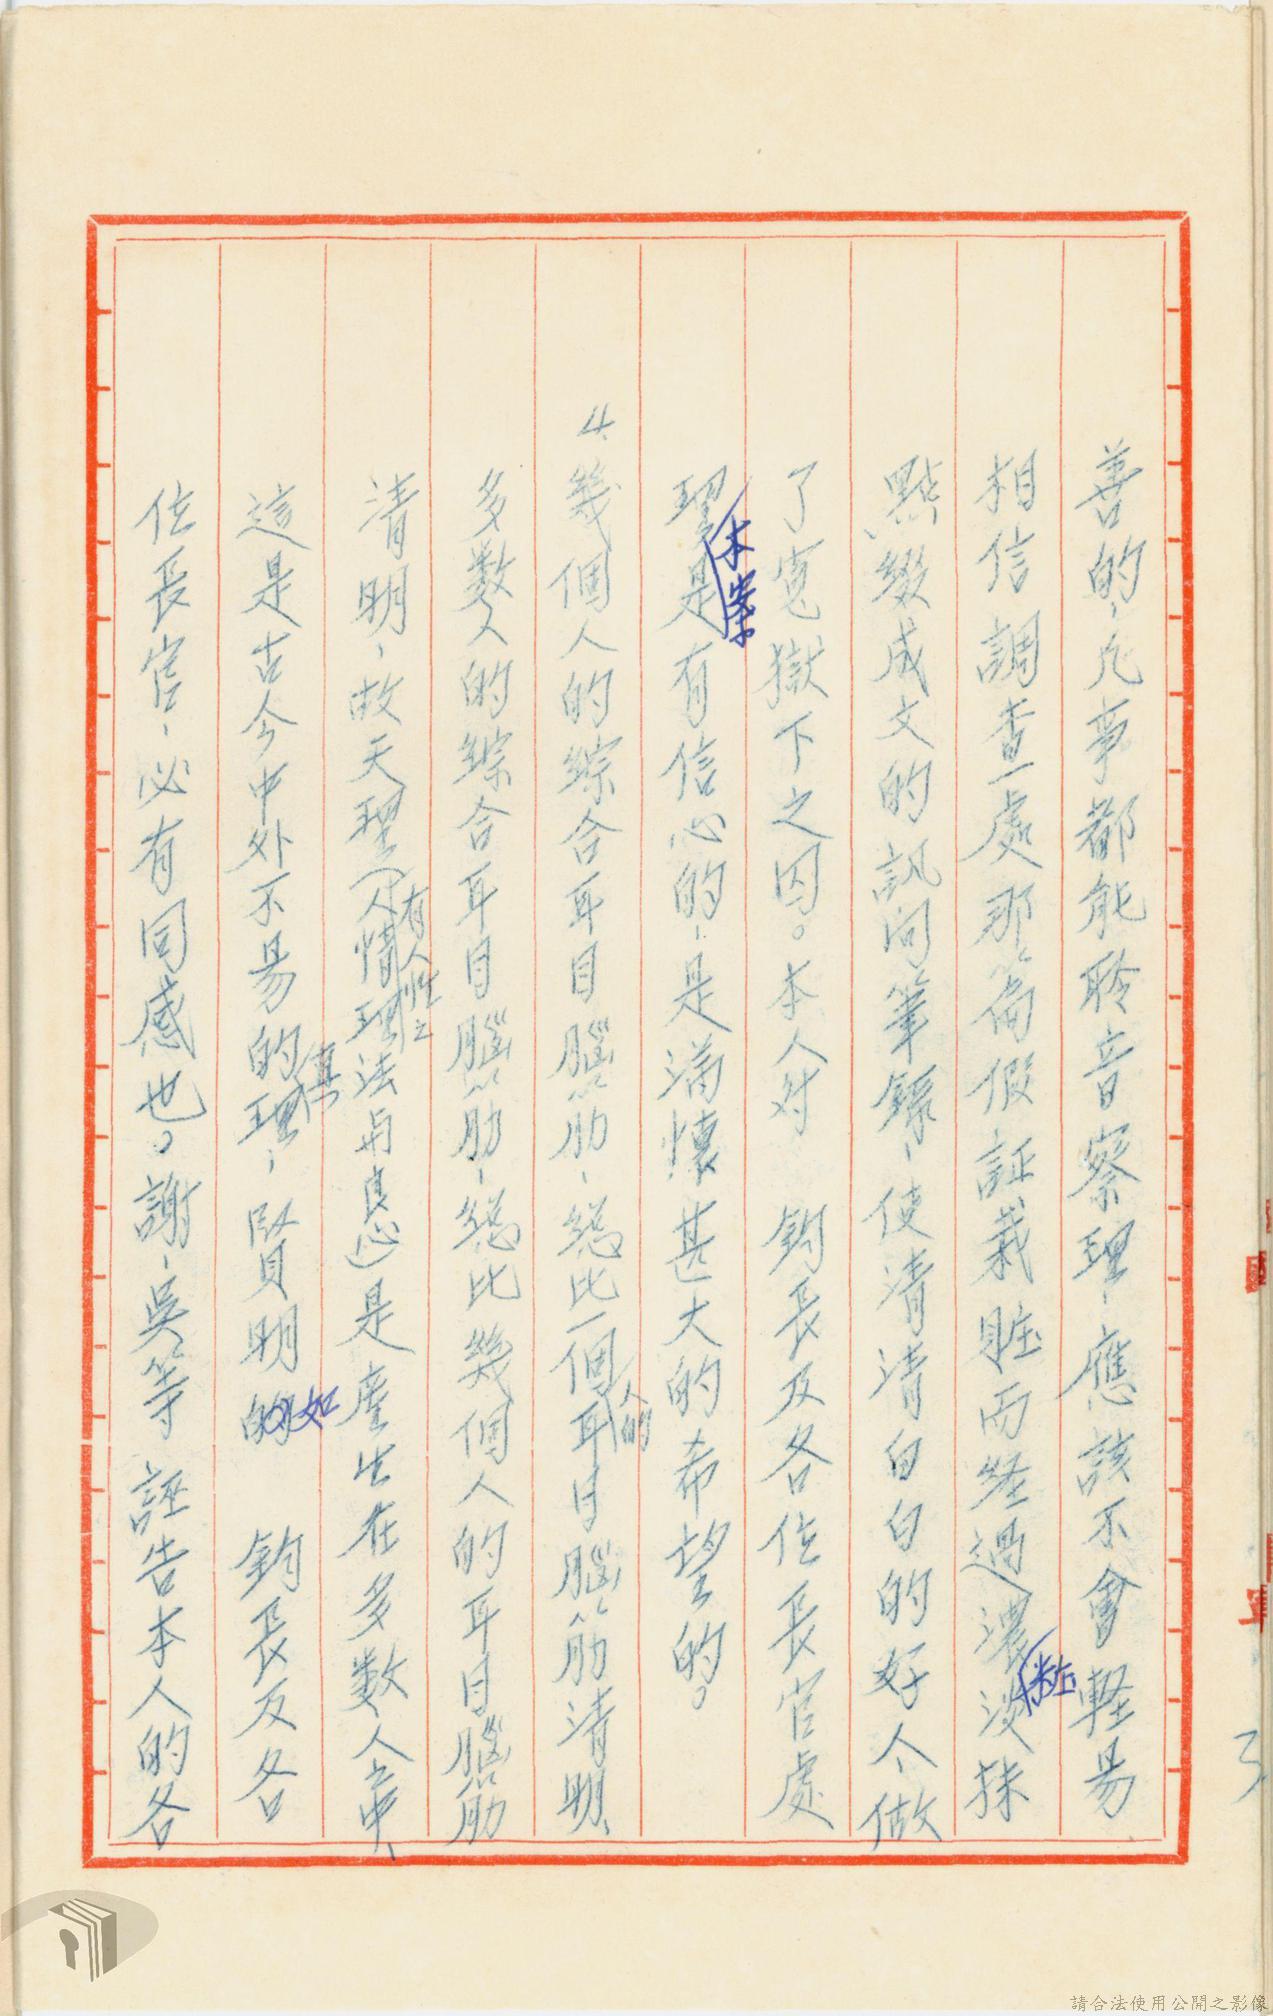 善的，凡事都能聆音察理，應該不會輕易
相信調查處那篇假証栽賍而經過濃粧淡抹
點綴成文的訊问筆錄，使清清白白的好人，做
了冤獄下之囚。本人对　鈞長及各位長官處
理本案是有信心的，是滿懷甚大的希望的。
4.幾個人的綜合耳目腦筋，總比一個人的耳目腦筋清明、
多数人的綜合耳目腦筋，總比幾個人的耳目腦筋
清明，故天理、人情有人性之理法与良心是產生在多数人之中、
這是古今中外不易的真理，賢明的如　鈞長及各
位長官，必有同感也。謝，吳等誣告本人的各
3
請合法使用公開之影像